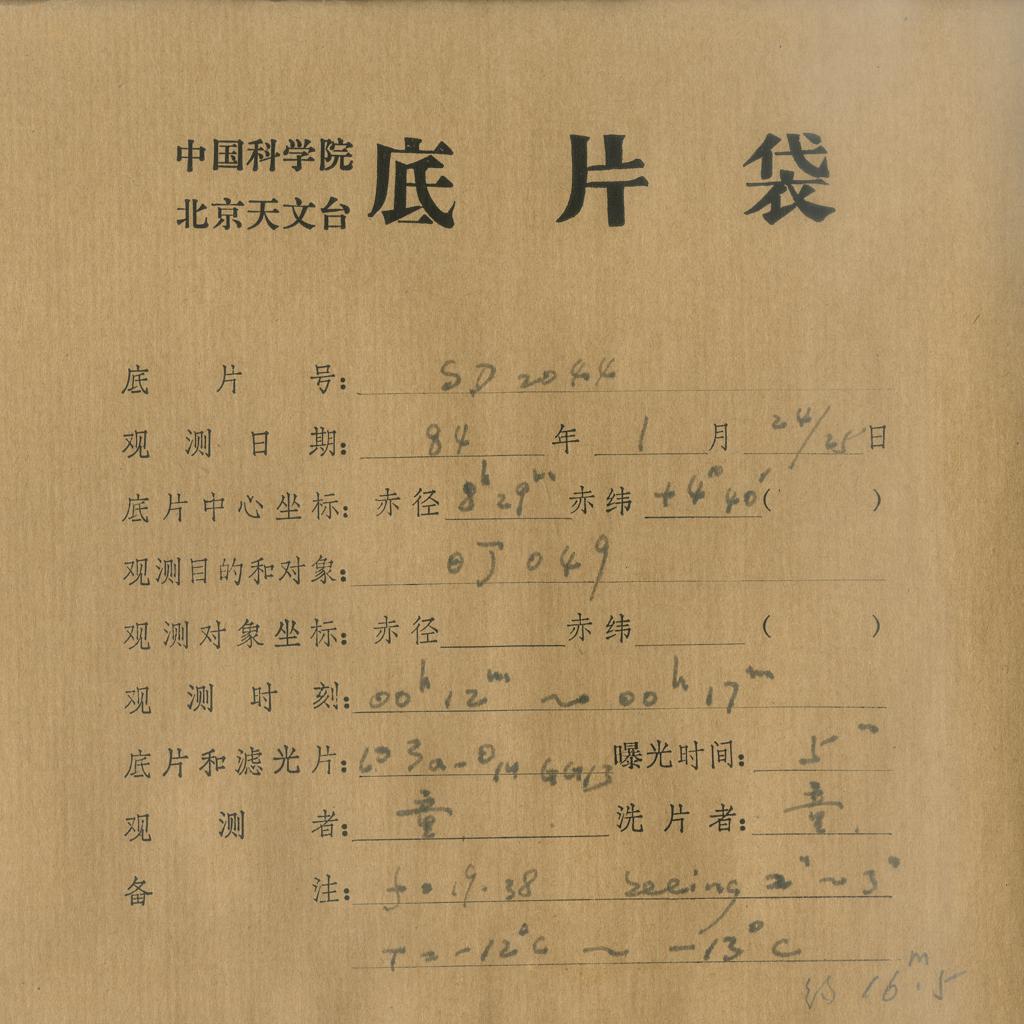 中国科学院
北京天文台
底片袋
底片号: SD 2044
观测日期: 84 年 1 月 24/25 日
底片中心坐标: 赤径 8h 29m 赤纬 +4° 40′ ( )
观测目的和对象: OJ 049
观测对象坐标: 赤径 赤纬 ( )
观测时刻: 00h 12m ~ 00h 17m
底片和滤光片: 103a-O, GG13 曝光时间: 5m
观测者: 童 洗片者: 童
备注: f = 19.38 seeing 2″ ~ 3″
T = -12°C ~ -13°C
约 16m.5